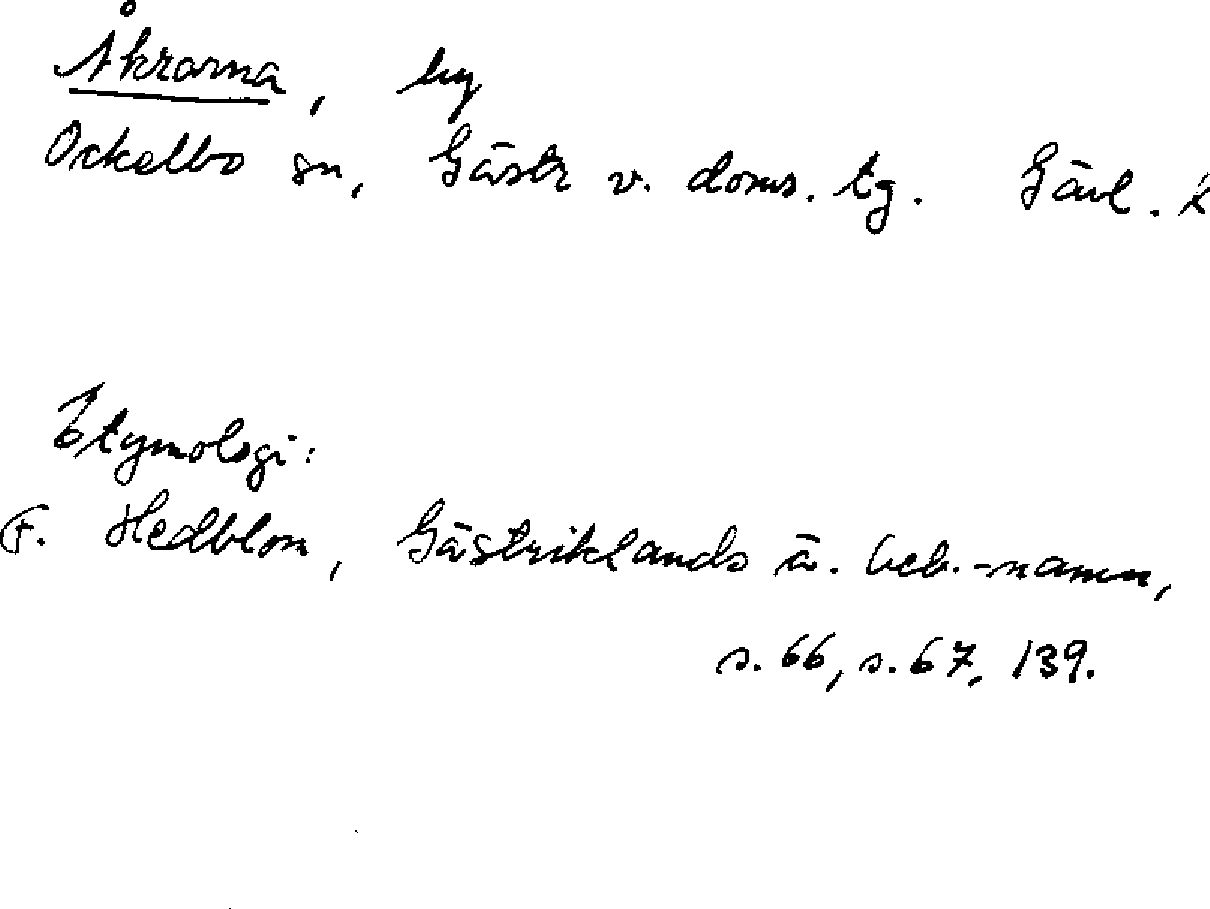 Åkrarna, by
Ockelbo sn, Gästr v. doms. tg. Gävl.
Etymologi:
F. Hedblom, Gästriklands ä. beb.-namn,
s. 66, s. 67, 139.